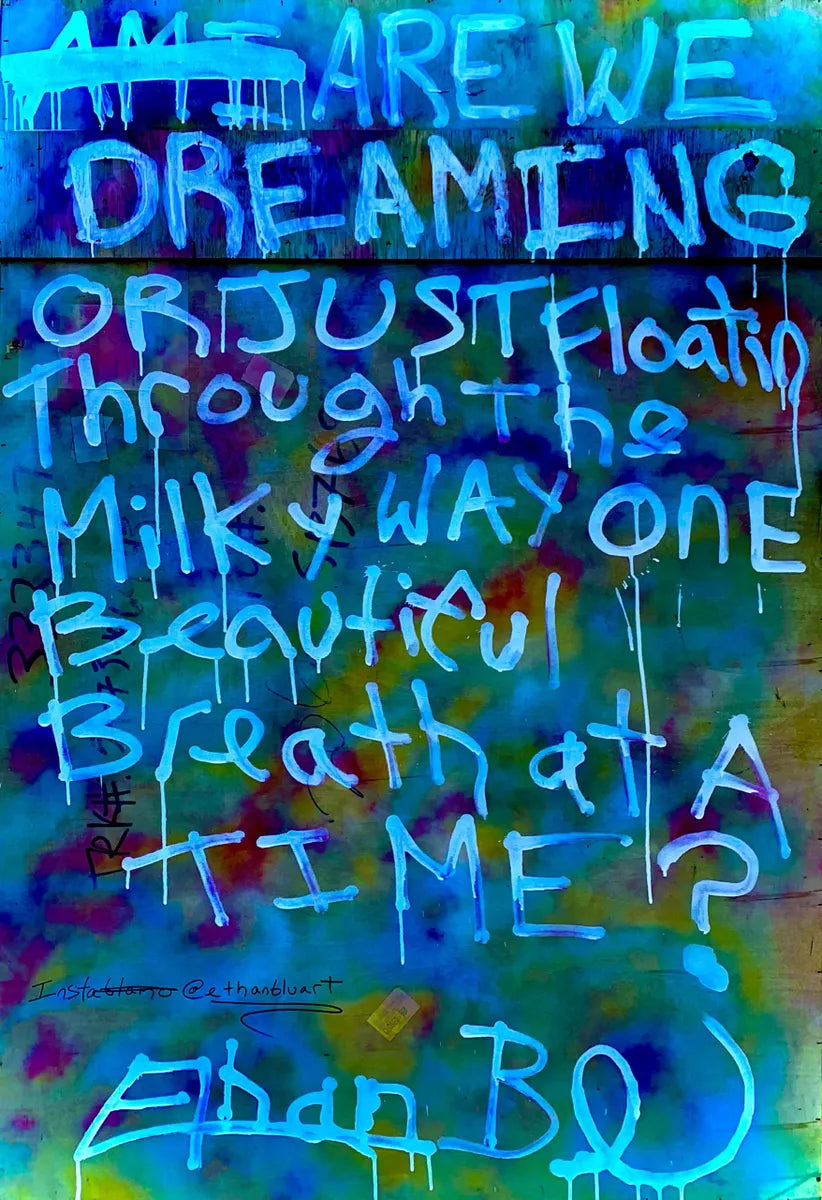 AM I ARE WE
DREAMING
OR JUST Floatin
Through The
Milky WAY OnE
Beautiful
Breath at A
TIME?
@ethanbluart
Ethan